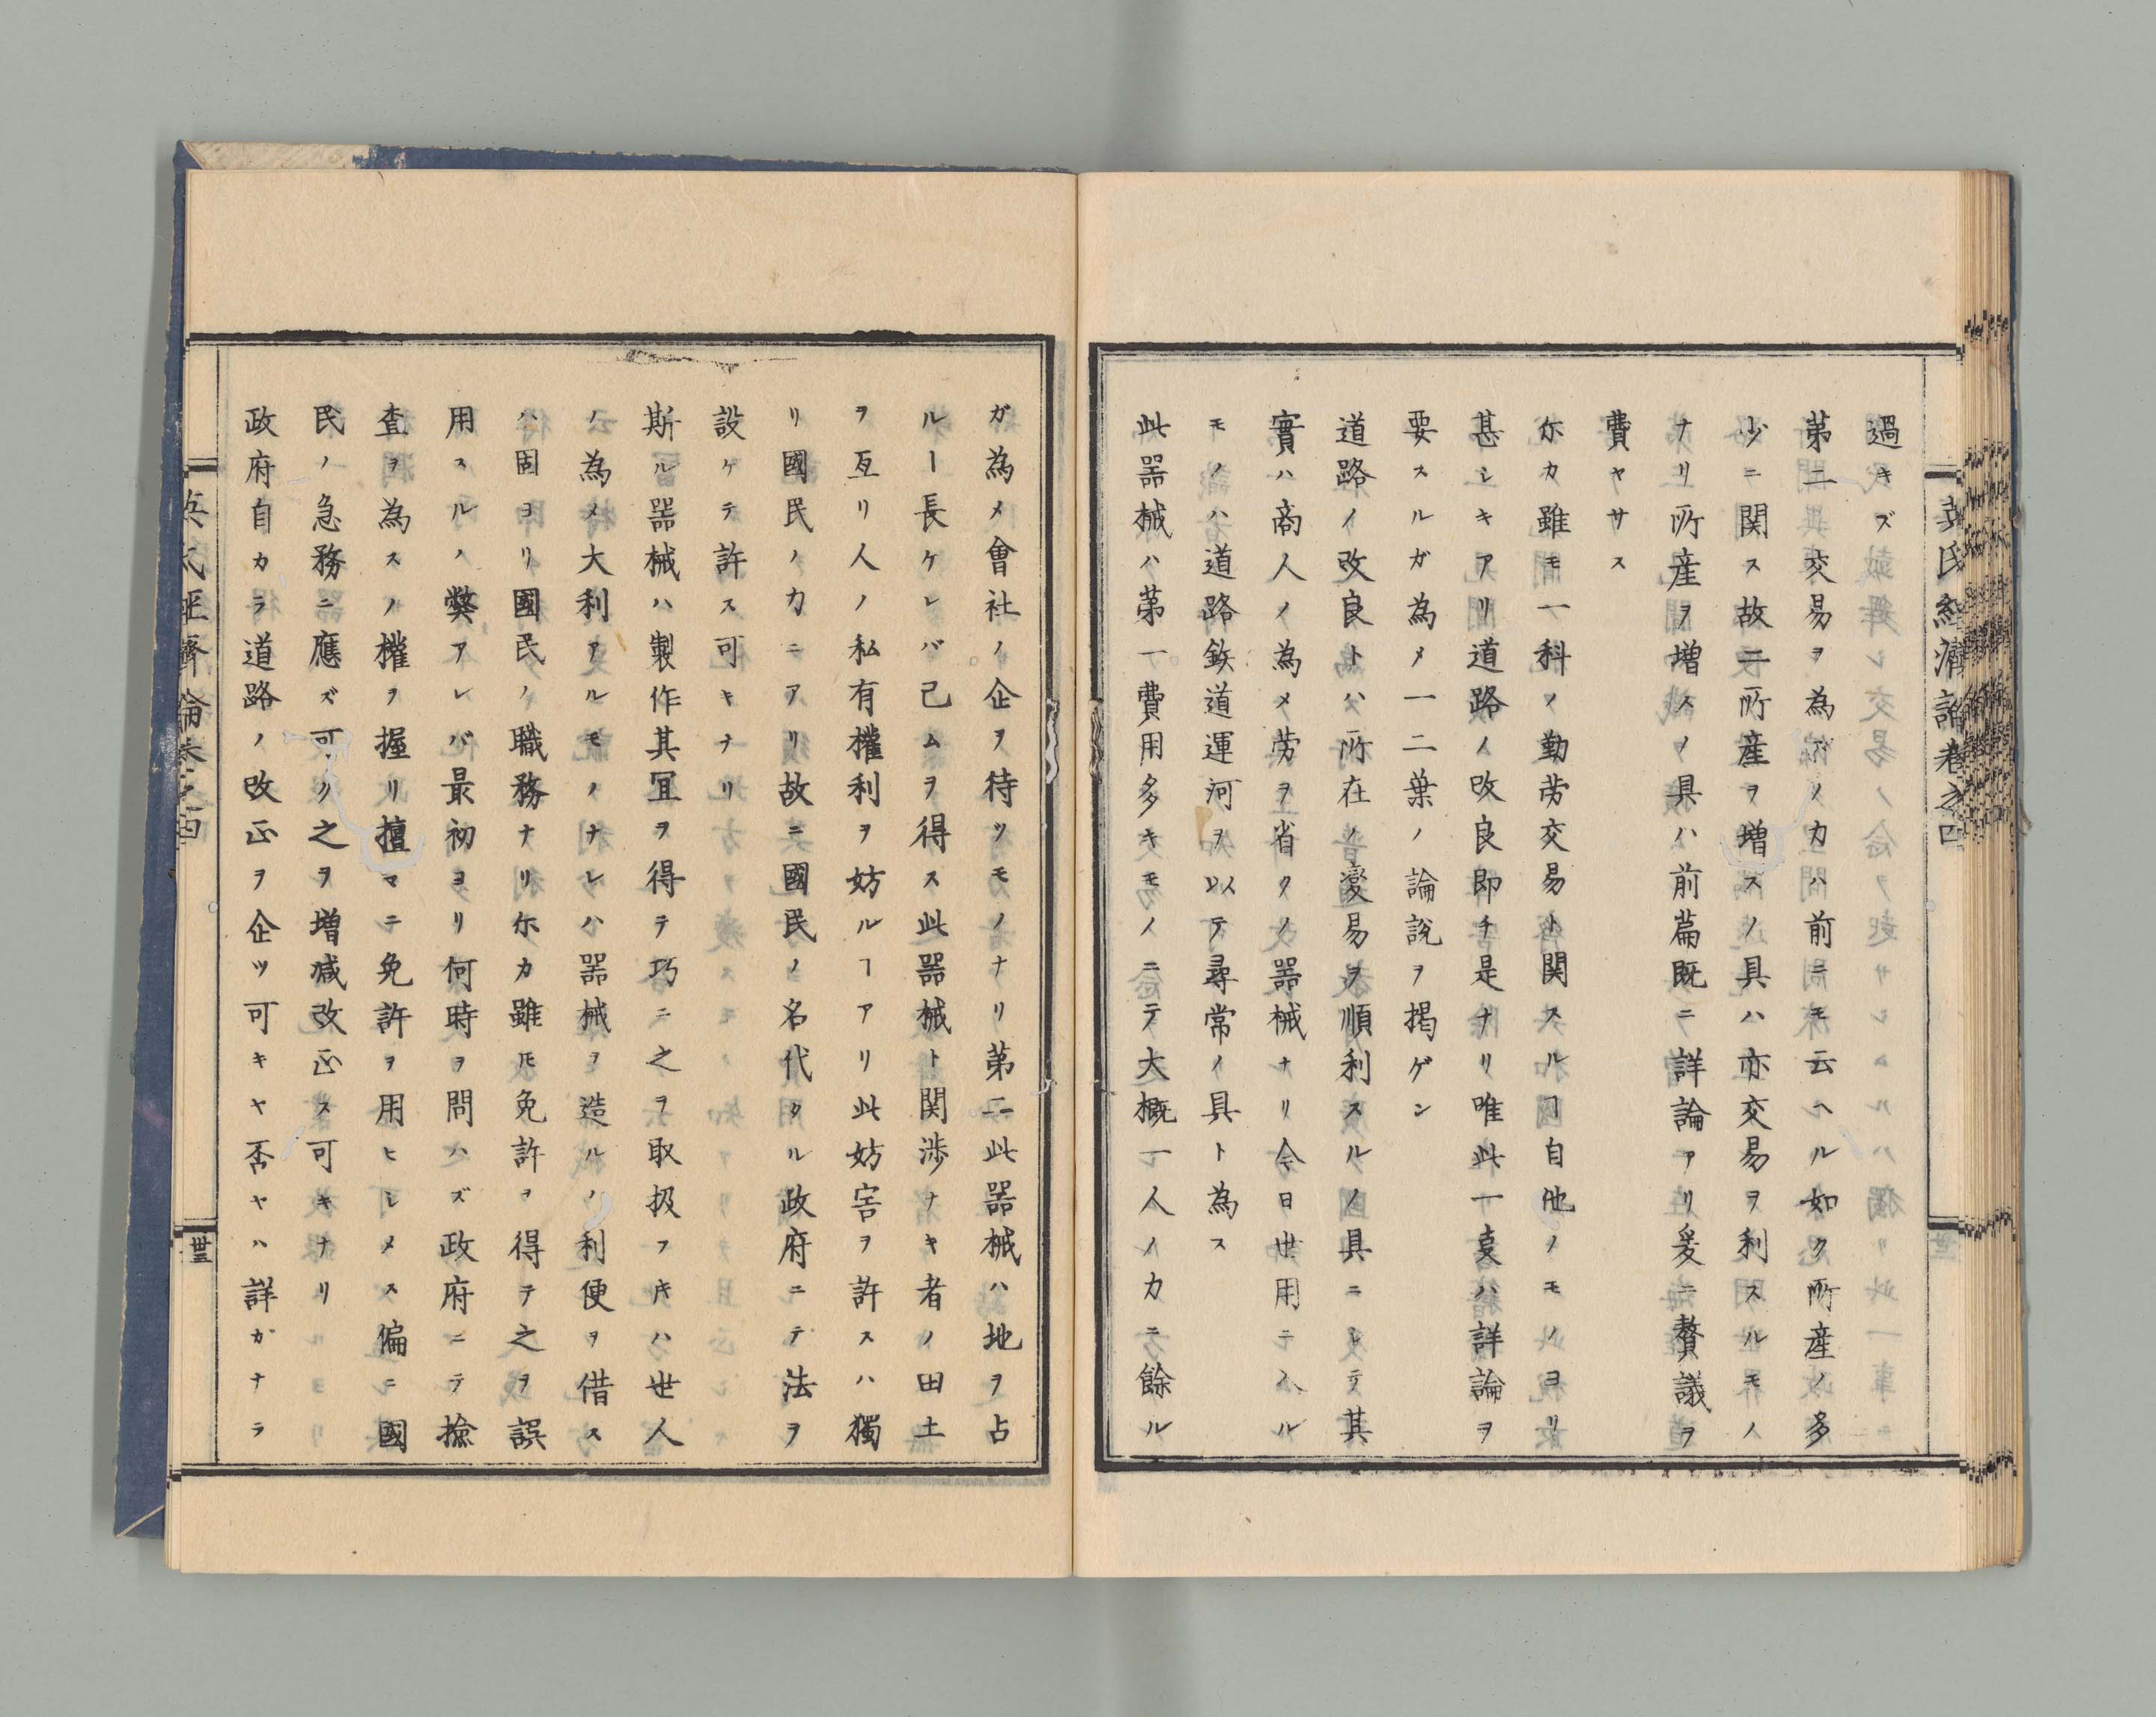 過キズ
第二交易ヲ為スノ力ハ前ニモ云ヘル如ク所産ノ多
少ニ関ス故ニ所産ヲ増スノ具ハ亦交易ヲ利スルモノ
ナリ所産ヲ増スノ具ハ前篇既ニ詳論アリ爰ニ贅議ヲ
費ヤサス
尓カ雖モ一科ノ勤労交易ト関スルヿ自他ノモノヨリ
甚シキアリ道路ノ改良即チ是ナリ唯此一叓ハ詳論ヲ
要スルガ為メ一二葉ノ論説ヲ掲ゲン
道路ノ改良トハ所在ノ変易ヲ順利スルノ具ニシテ其
實ハ商人ノ為メ労ヲ省クノ器械ナリ今日世用ニ入ル
モノハ道路鉄道運河ヲ以テ尋常ノ具ト為ス
此器械ハ第一費用多キモノニテ大概一人ノ力ニ餘ル
ガ為メ會社ノ企ヲ待ツモノナリ第二此器械ハ地ヲ占
ルー長ケレバ已ムヲ得ス此器械ト関渉ナキ者ノ田土
ヲ亙リ人ノ私有權利ヲ妨ルヿアリ此妨害ヲ許スハ獨
リ國民ノ力ニアリ故ニ國民ノ名代タル政府ニテ法ヲ
設ケテ許ス可キナリ
斯ル器械ハ製作其冝ヲ得テ巧ニ之ヲ取扱フ片ハ世人
ノ為メ大利アルモノナレハ器械ヲ造ルノ利便ヲ借ス
ハ固ヨリ國民ノ職務ナリ尓カ雖𪜈免許ヲ得テ之ヲ誤
用スルノ弊アレバ最初ヨリ何時ヲ問ハズ政府ニテ撿
査ヲ為スノ權ヲ握リ擅マニ免許ヲ用ヒシメス偏ニ國
民ノ急務ニ應ズ可ク之ヲ増减改正ス可キナリ
政府自カラ道路ノ改正ヲ企ツ可キヤ否ヤハ詳ガナラ
英氏經濟論卷之四
卅三